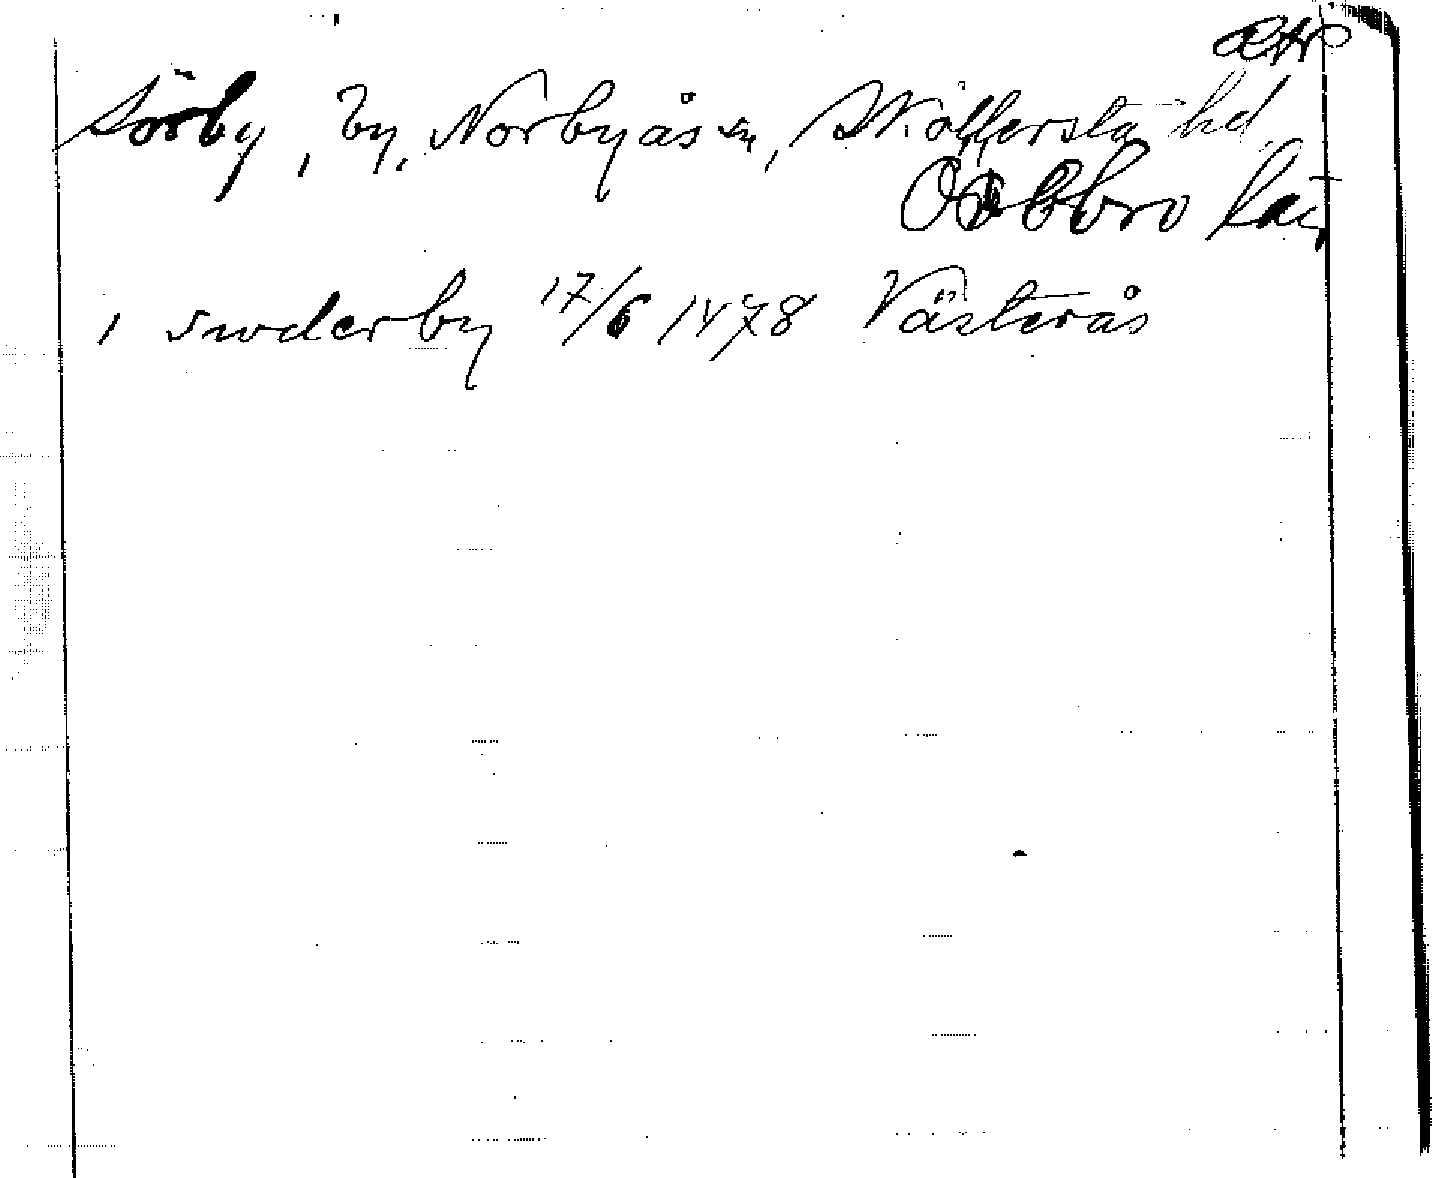 Sörby, by, Norbyås sn, Sköllersta hd
Örebro län
i suderby 17/6 1478 Västerås